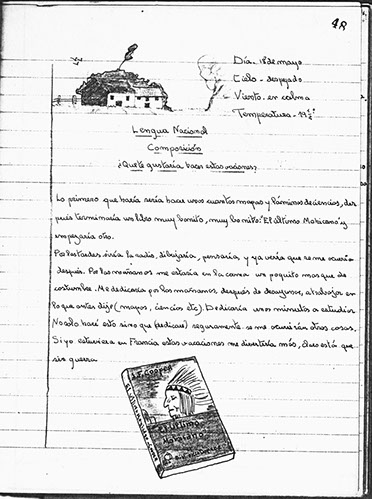 Día - 18 de mayo
Cielo - despejado
Viento - en calma
Temperatura - 19
Lengua Nacional
Composición
¿Qué te gustaria hacer estas vacaciones?
Lo primero que haría sería hacer unos cuantos mapas y láminas de ciencias, des
pués terminaría un libro muy bonito, muy bonito: "El último Mohicano" y
empezaría otro.
Por las tardes oiría la radio, dibujaría, pensaría y ya vería que se me ocurría
después. Por las mañanas me estaría en la cama un poquito mas que de
costumbre. Me dedicaría por las mañanas después de desayunar, al trabajo en
lo que antes dije (mapas, ciencias etc). Dedicaría unos minutos a estudiar
No solo haré esto sino que (dedicaré) seguramente se me ocurrirán otras cosas.
Si yo estuviera en Francia estas vacaciones me divertiría más, pues está
sin guerra
El último
Mohicano